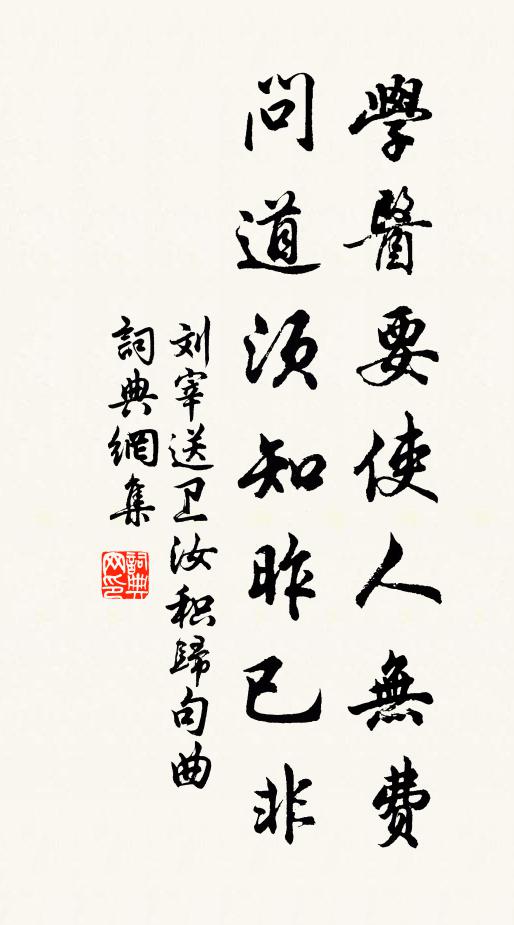 學醫要使人無費
問道須知昨已非
刘宰送卫汝积歸句曲
詞典網集
詞典网印